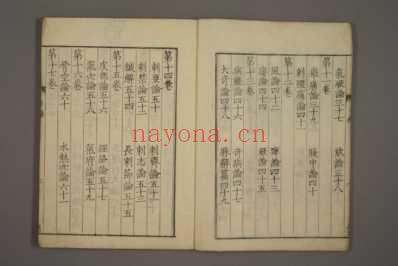 氣厥論三十七 欬論三十八
第十一卷
舉痛論三十九 腹中論四十
刺腰痛論四十一
第十二卷
風論四十二 痺論四十三
痿論四十四 厥論四十五
第十三卷
病能論四十六 奇病論四十七
大奇論四十八 脉解篇四十九
第十四卷
刺要論五十 刺齊論五十一
刺禁論五十二 刺志論五十三
鍼解五十四 長刺節論五十五
第十五卷
皮部論五十六 經絡論五十七
氣穴論五十八 氣府論五十九
第十六卷
骨空論六十 水熱穴論六十一
第十七卷
nayona.cn